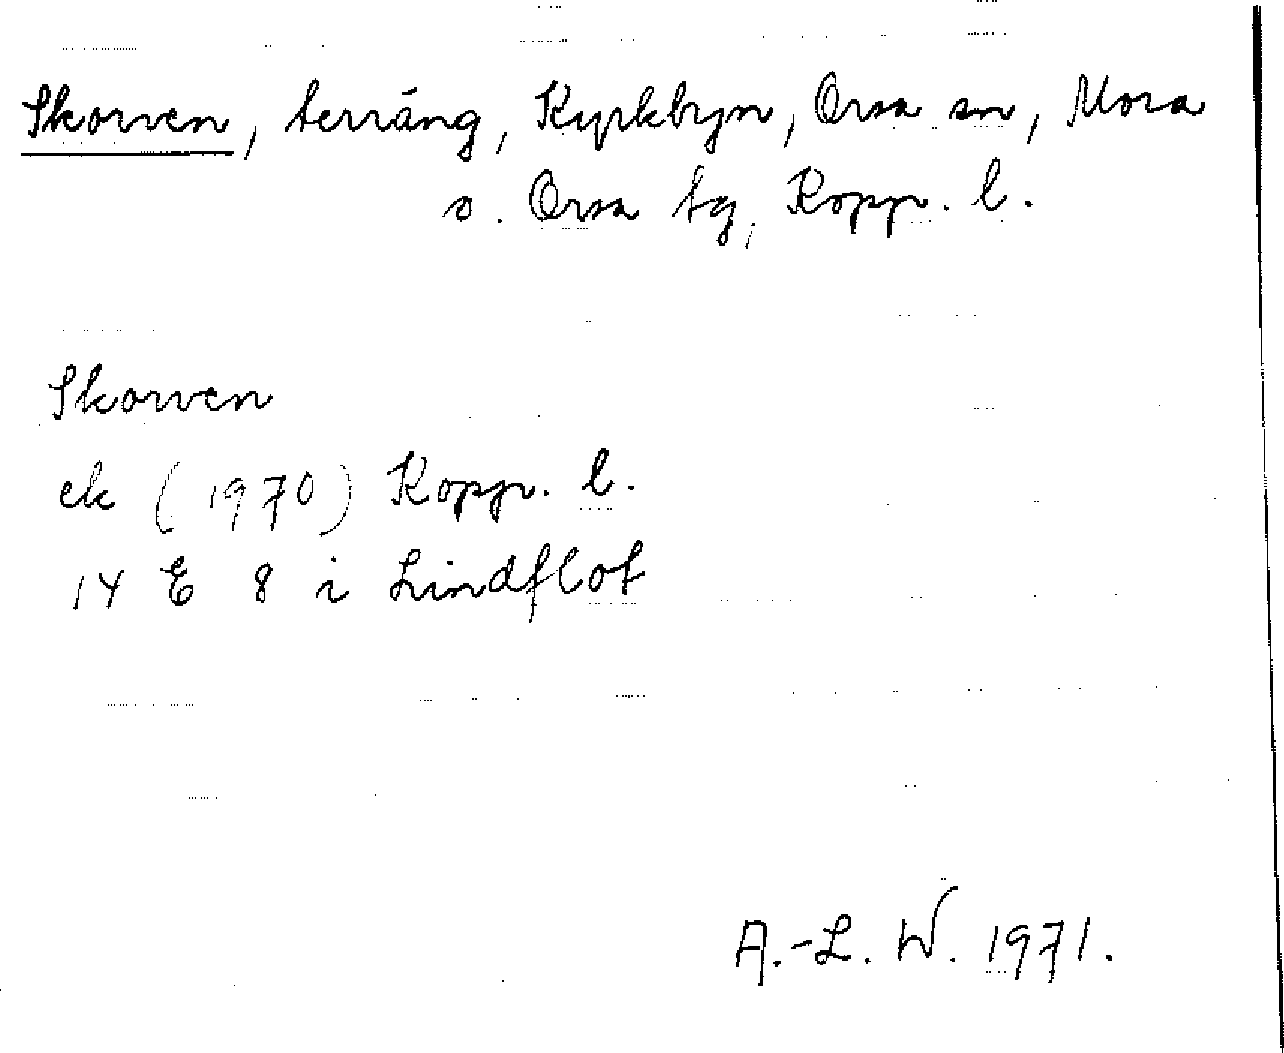 Skorven, terräng, Kyrkbyn, Orsa sn, Mora
o. Orsa tg, Kopp. l.
Skorven
ek (1970) Kopp. l.
14 E 8 i Lindflot
A.-L. W. 1971.